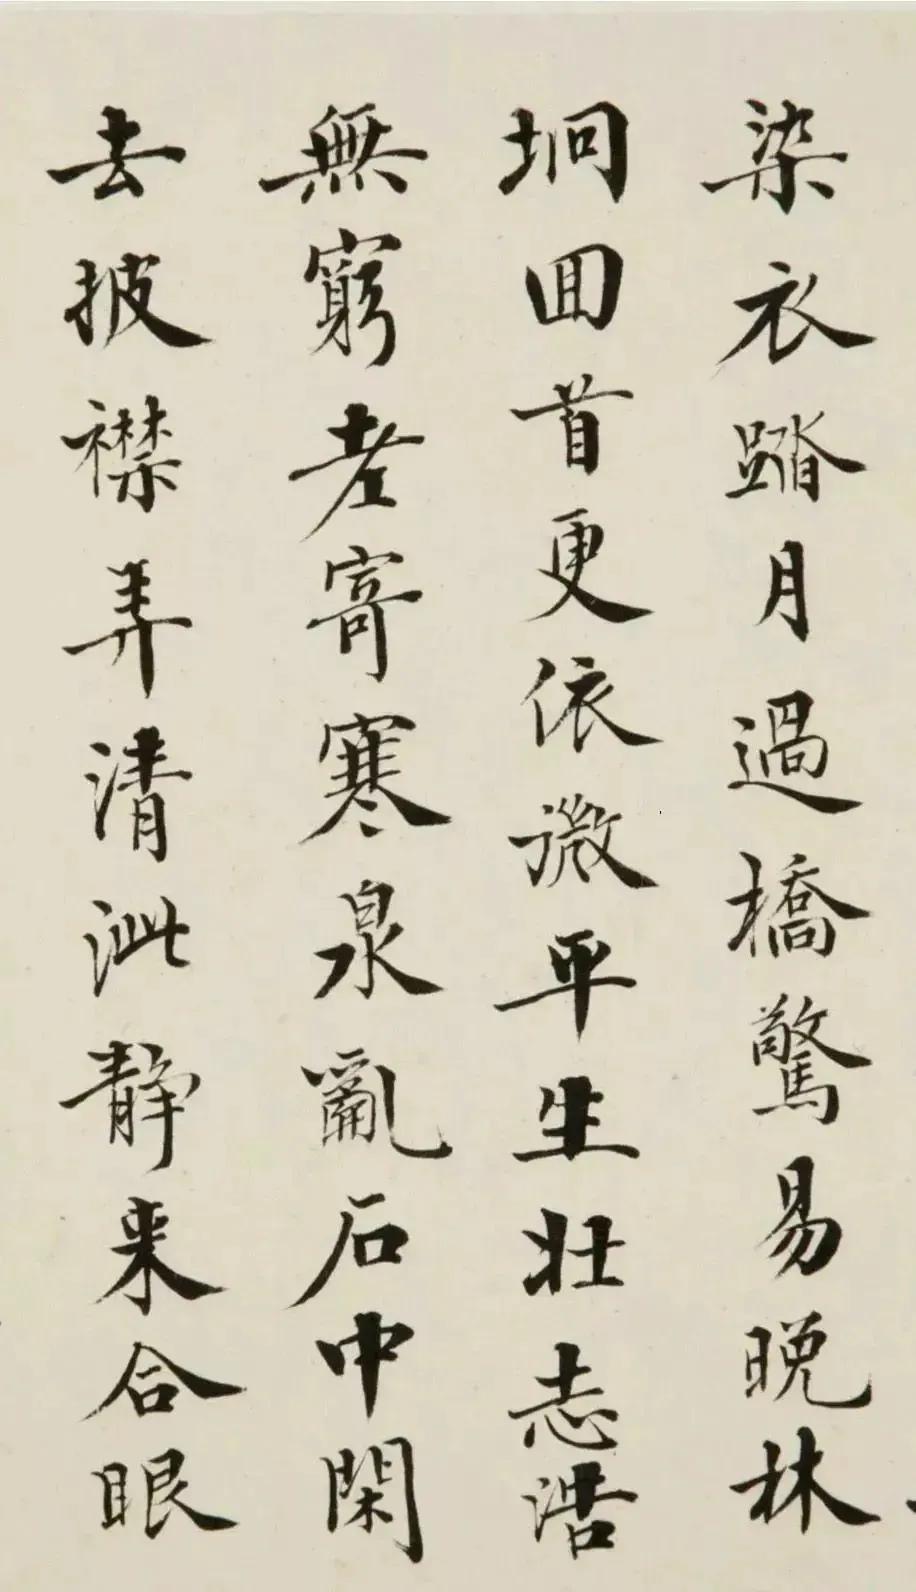 染衣踏月過橋驚易晚林
坰囬首更依微平生壯志浩
無窮老寄寒泉亂石中閑
去披襟弄清泚静来合眼